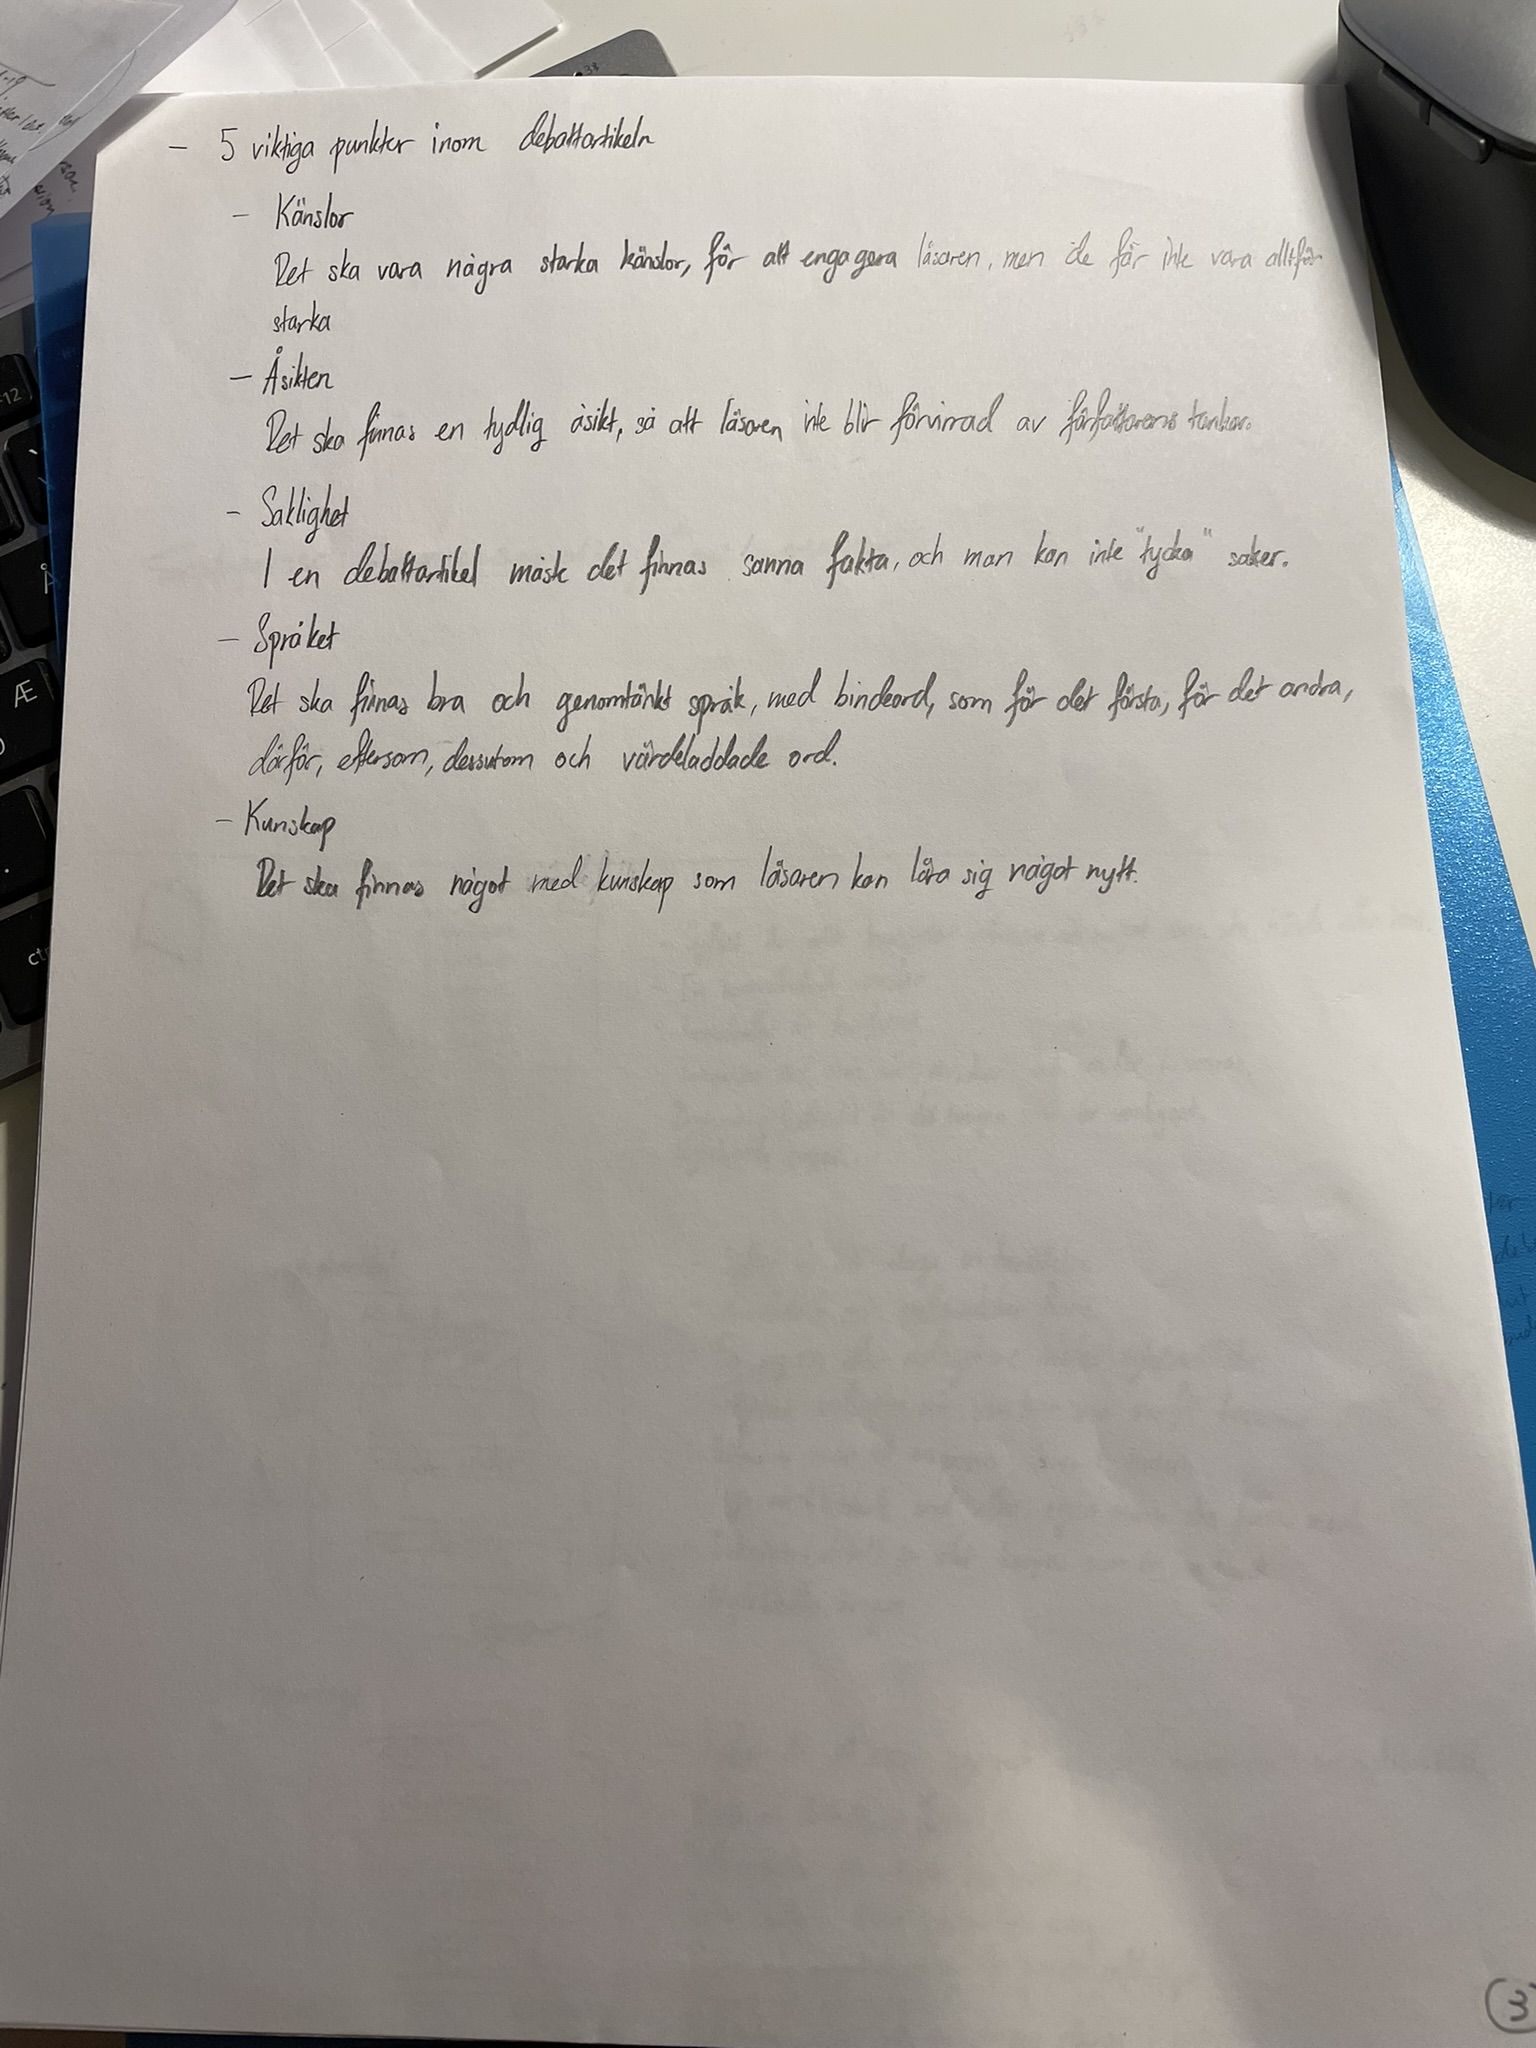 - 5 viktiga punkter inom debattartikeln
- Känslor
Det ska vara några starka känslor, för att engagera läsaren, men de får inte vara alltför
starka
- Åsikten
Det ska finnas en tydlig åsikt, så att läsaren inte blir förvirrad av författarens tankar.
- Saklighet
I en debattartikel måste det finnas sanna fakta, och man kan inte "tycka" saker.
- Språket
Det ska finnas bra och genomtänkt språk, med bindeord, som för det första, för det andra,
därför, eftersom, dessutom och värdeladdade ord.
- Kunskap
Det ska finnas något med kunskap som läsaren kan lära sig något nytt.
3
F12
Å
Æ
ctr